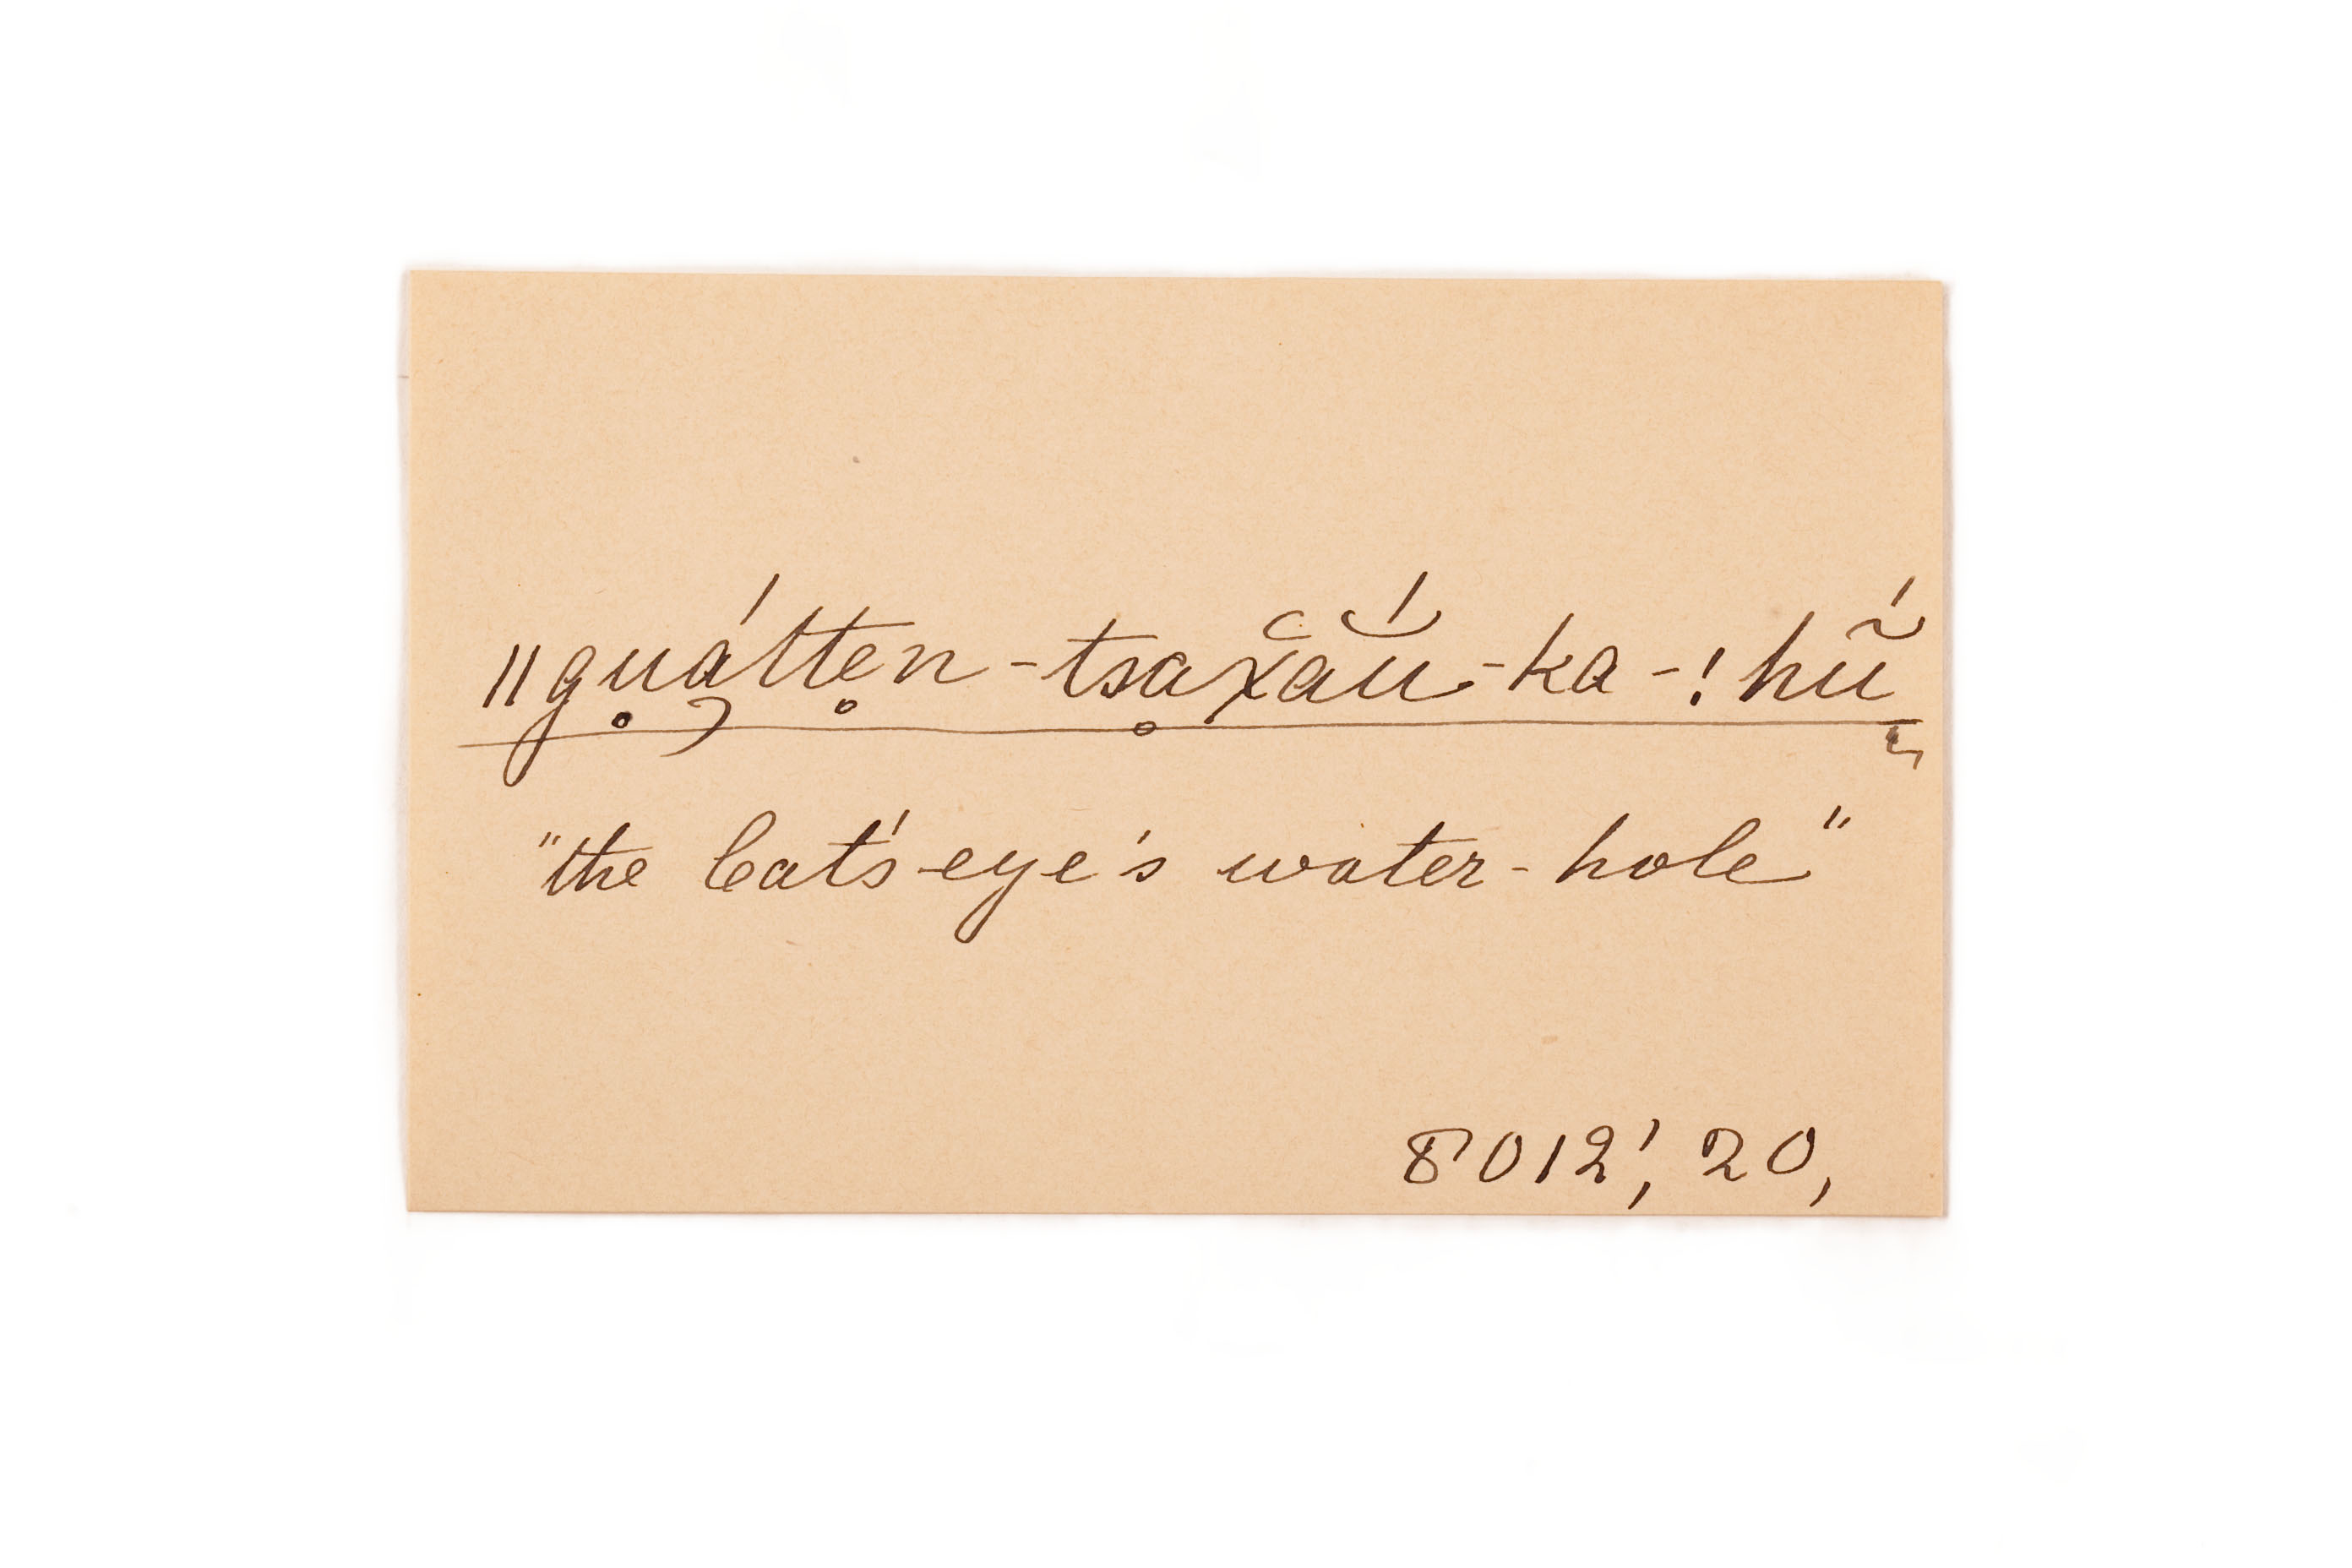 ǁgu̥á̧tte̥n-tsḁx̆aŭ́-ka-!hṹ̱
"the Cat's-eye's water-hole"
8012', 20,